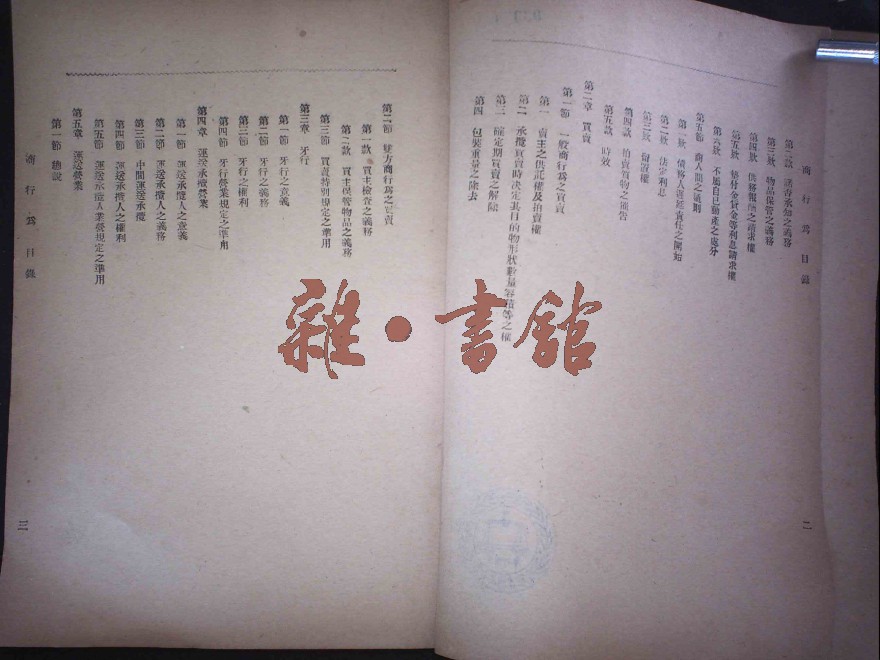 商行為目錄
第二款 諾否承知之義務
第三款 物品保管之義務
第四款 債務報酬之請求權
第五款 墊付金貸金等利息請求權
第六款 不屬自己動產之處分
第五節 商人間之通則
第一款 債務人遲延責任之開始
第二款 法定利息
第三款 留置權
第四款 拍賣質物之預告
第五款 時效
第二章 買賣
第一節 一般商行為之買賣
第一 賣主之供託權及拍賣權
第二 承攬買賣時決定其目的物形狀數量容積等之權
第三 確定期買賣之解除
第四 包裝重量之除去
二
第二節 雙方商行為之買賣
第一款 買主檢查之義務
第二款 買主保管物品之義務
第三節 買賣特別規定之準用
第三章 牙行
第一節 牙行之意義
第二節 牙行之義務
第三節 牙行之權利
第四節 牙行營業規定之準用
第四章 運送承攬營業
第一節 運送承攬人之意義
第二節 運送承攬人之義務
第三節 中間運送承攬
第四節 運送承攬人之權利
第五節 運送承攬人業營規定之準用
第五章 運送營業
第一節 總說
商行為目錄
三
雜·書館